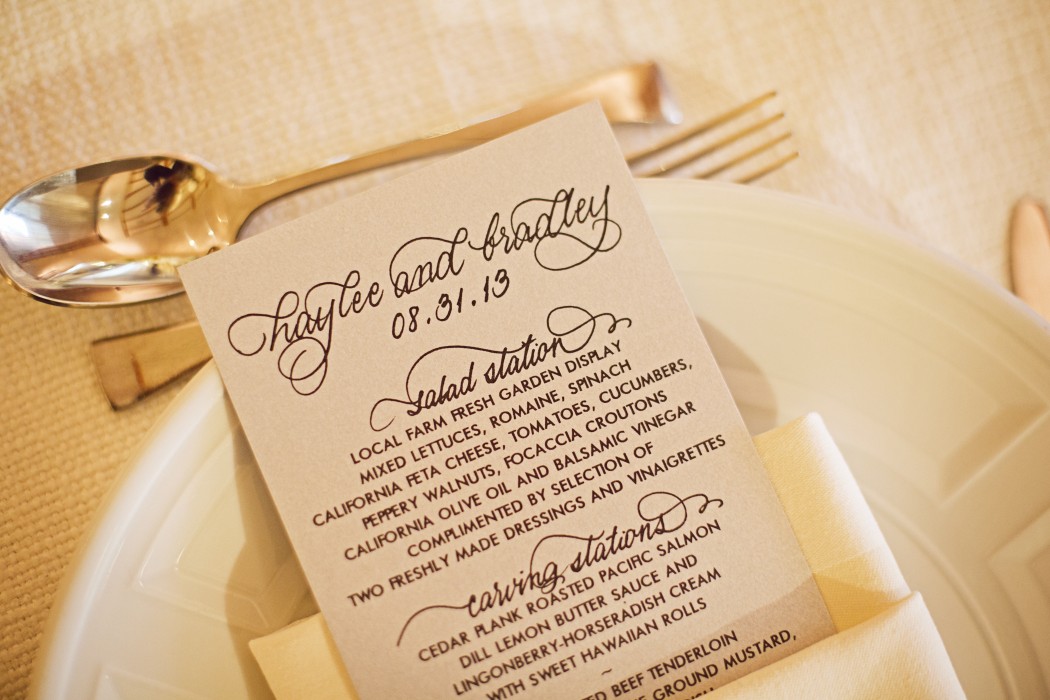 haylee and bradley
08.31.13
salad station
LOCAL FARM FRESH GARDEN DISPLAY
MIXED LETTUCES, ROMAINE, SPINACH
CALIFORNIA FETA CHEESE, TOMATOES, CUCUMBERS,
PEPPERY WALNUTS, FOCACCIA CROUTONS
CALIFORNIA OLIVE OIL AND BALSAMIC VINEGAR
COMPLIMENTED BY SELECTION OF
TWO FRESHLY MADE DRESSINGS AND VINAIGRETTES
carving stations
CEDAR PLANK ROASTED PACIFIC SALMON
DILL LEMON BUTTER SAUCE AND
LINGONBERRY-HORSERADISH CREAM
WITH SWEET HAWAIIAN ROLLS
~
BEEF TENDERLOIN
GROUND MUSTARD,